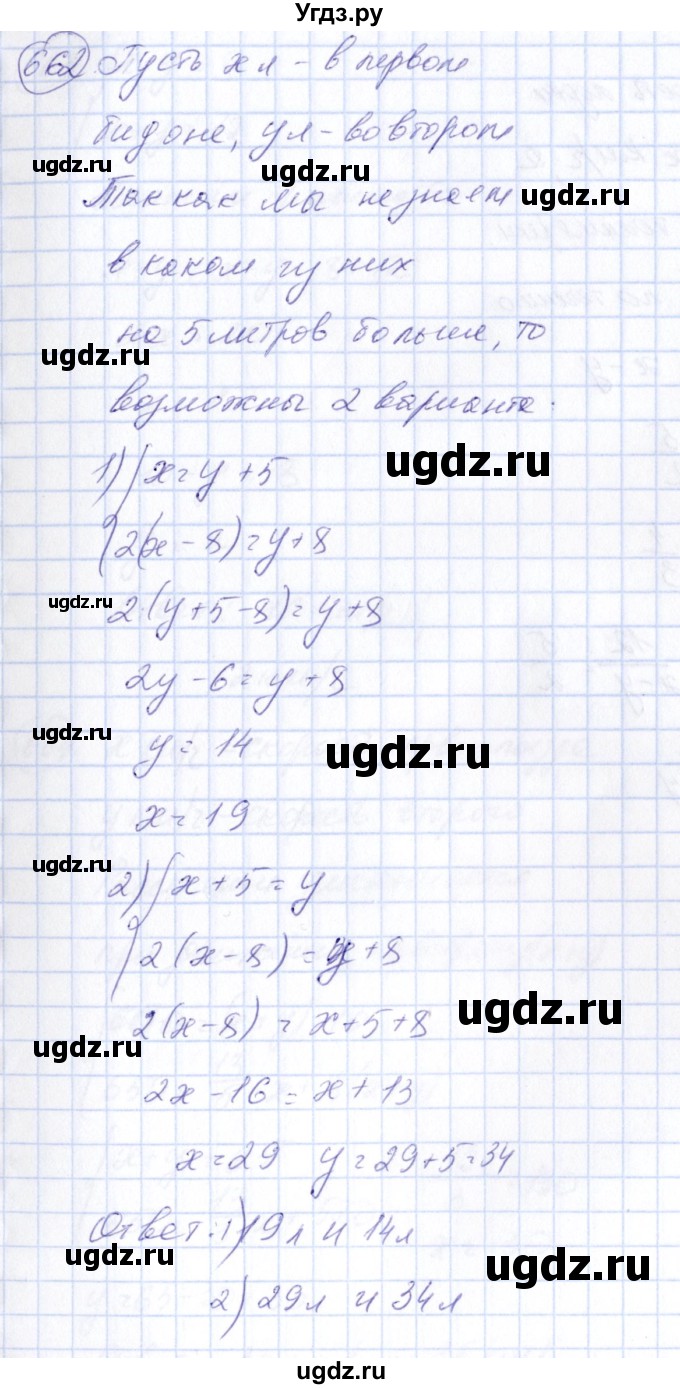 Угдз.ру
662. Пусть x л - в первом
бидоне, y л - во втором
ugdz.ru ugdz.ru
Так как мы не знаем
ugdz.ru
в каком из них
на 5 литров больше, то
ugdz.ru
возможны 2 варианта:
1) { x = y + 5
ugdz.ru
2(x - 8) = y + 8
ugdz.ru
2·(y + 5 - 8) = y + 8
2y - 6 = y + 8
ugdz.ru
y = 14
ugdz.ru
x = 19
ugdz.ru
2) { x + 5 = y
2(x - 8) = y + 8
ugdz.ru
2(x - 8) = x + 5 + 8
ugdz.ru
2x - 16 = x + 13
x = 29 y = 29 + 5 = 34
Ответ: 1) 19 л и 14 л
ugdz.ru
ugdz.ru
2) 29 л и 34 л
ugdz.ru